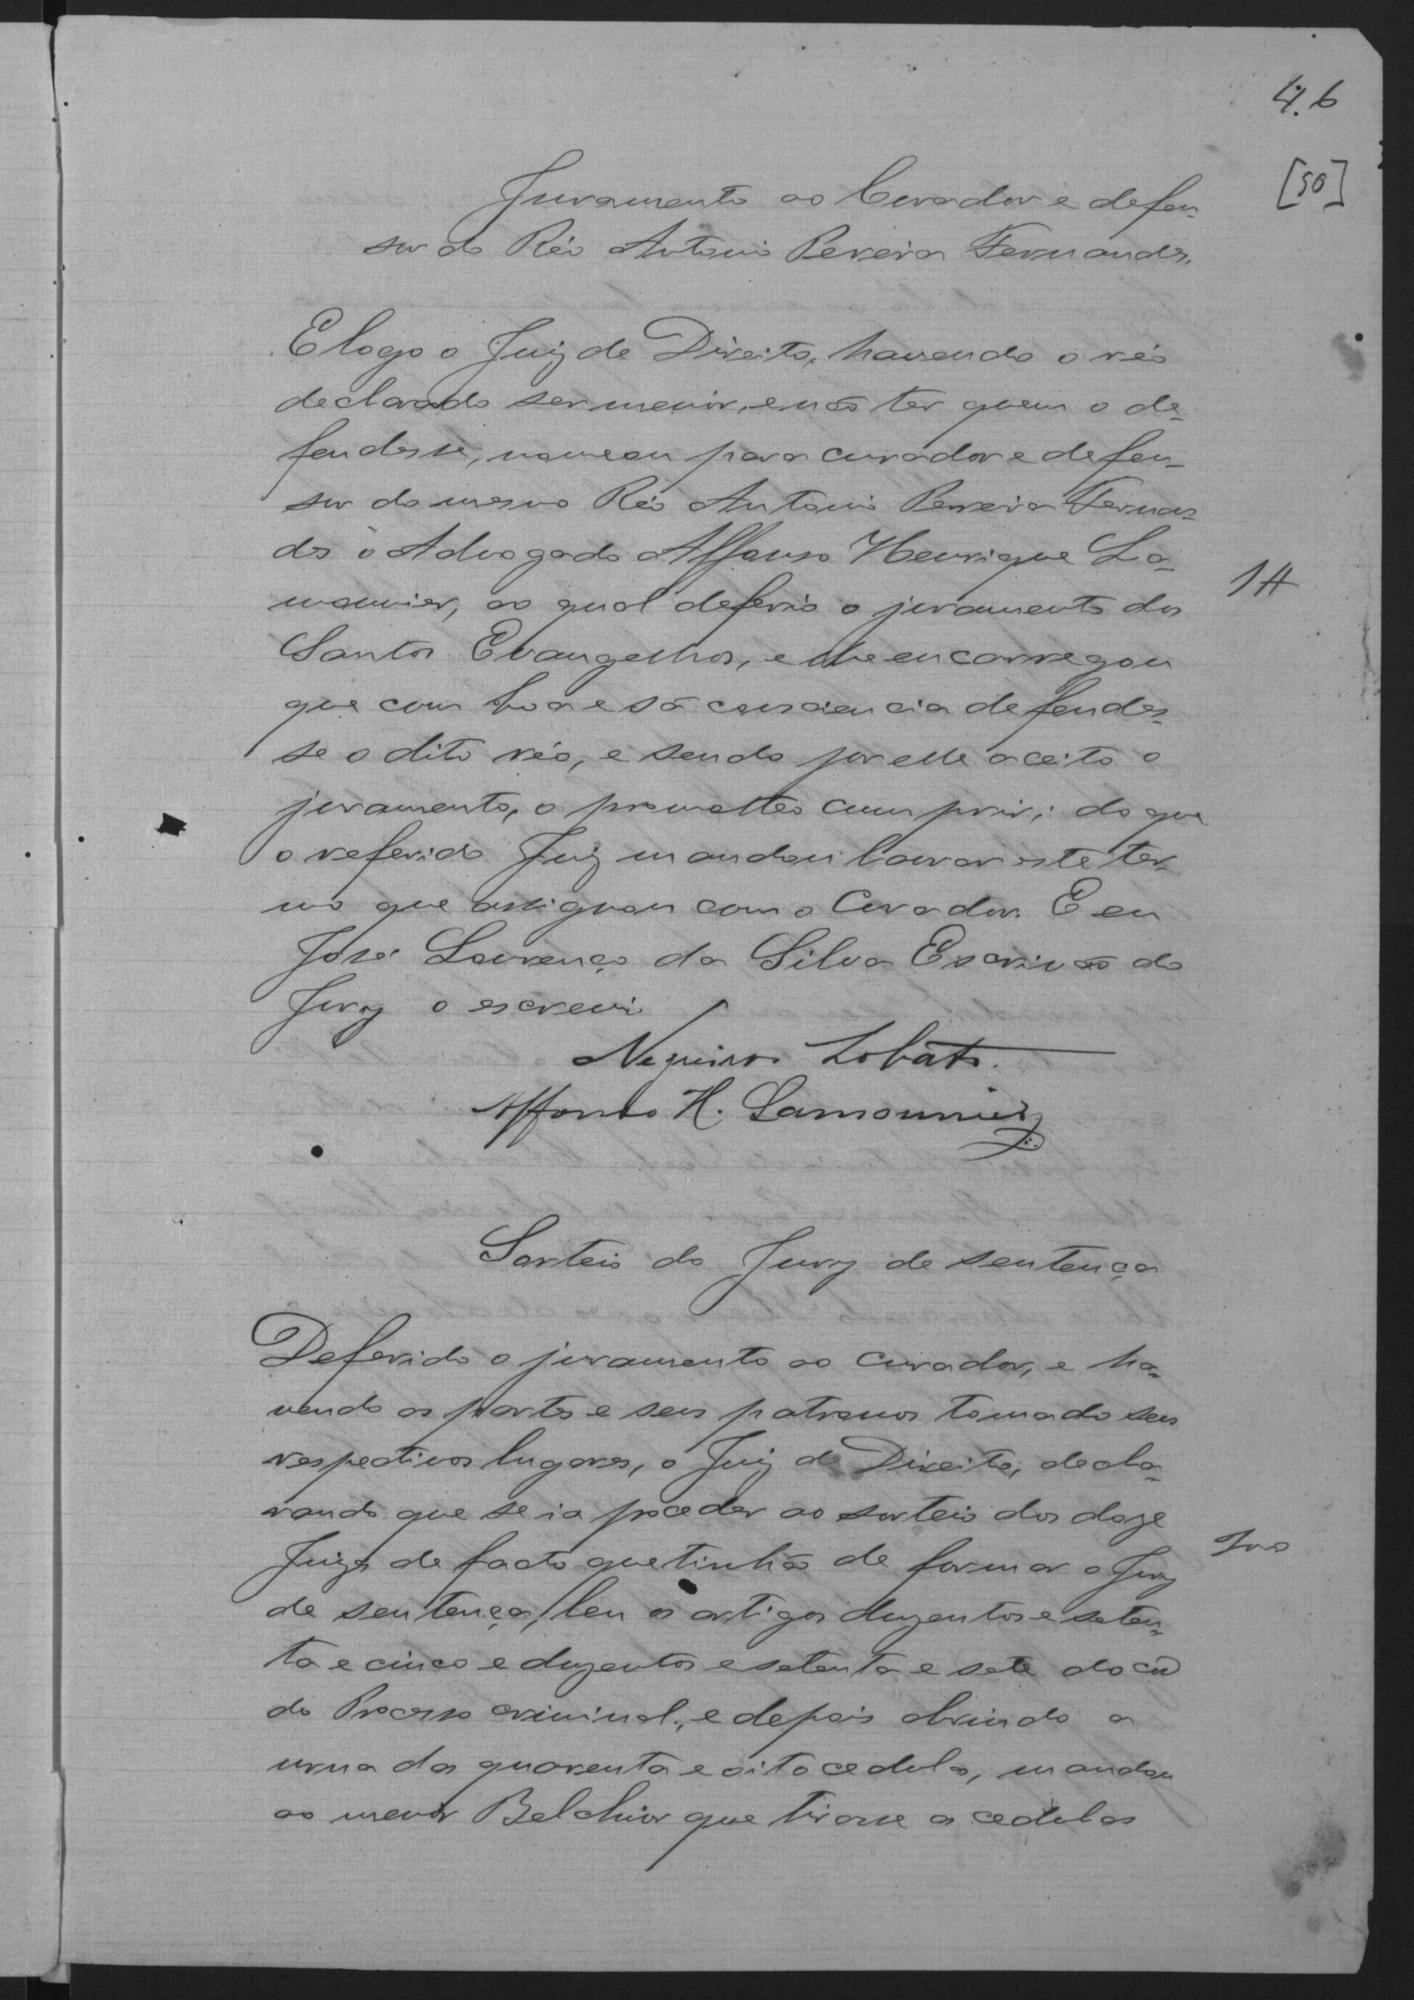 46
[50]
Juramento ao Curador e defen-
sor do Réo Antonio Pereira Fernandes.
E logo o Juiz de Direito, havendo o réo
declarado ser menor, e não ter quem o de-
fendesse, nomeou para curador e defen-
sor do mesmo Réo Antonio Pereira Fernan-
des o Advogado Affonso Henrique La-
mounier, ao qual deferio o juramento dos
Santos Evangelhos, e lhe encarregou
que com boa e sã consciencia defendes-
se o dito réo, e sendo por elle aceito o
juramento, o prometteo cumprir; do que
o referido Juiz mandou lavrar este ter-
mo que assignou com o Curador. E eu
José Lourenço da Silva Escrivão do
Jury o escrevi
Negreiros Lobato.
Affonso H. Lamounier
Sorteio do Jury de sentença
Deferido o juramento ao curador, e ha-
vendo as partes e seus patronos tomado seus
respectivos lugares, o Juiz de Direito, decla-
rando que se ia proceder ao sorteio dos doze
Juizes de facto que tinhão de formar o Jury
de sentença, leu os artigos duzentos e seten-
ta e cinco e duzentos e setenta e sete do cod
do Processo criminal, e depois abrindo a
urna das quarenta e oito cedulas, mandou
ao menor Belchior que tirasse as cedulas